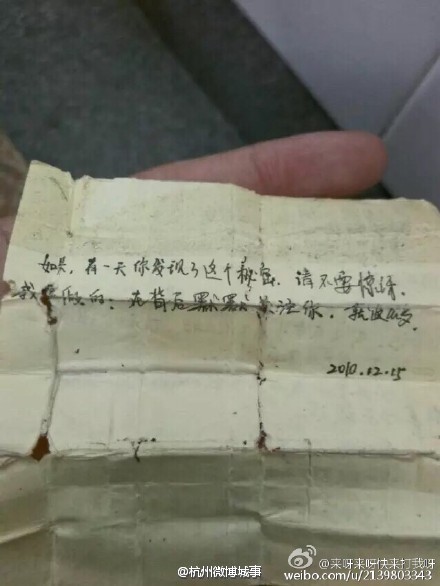 如果,有一天你发现了这个秘密,请不要惊讶,
我要做的,在背后默默关注你,
2010.12.15
@杭州微博城事
@来呀来呀快来打我呀
weibo.com/u/2139803343